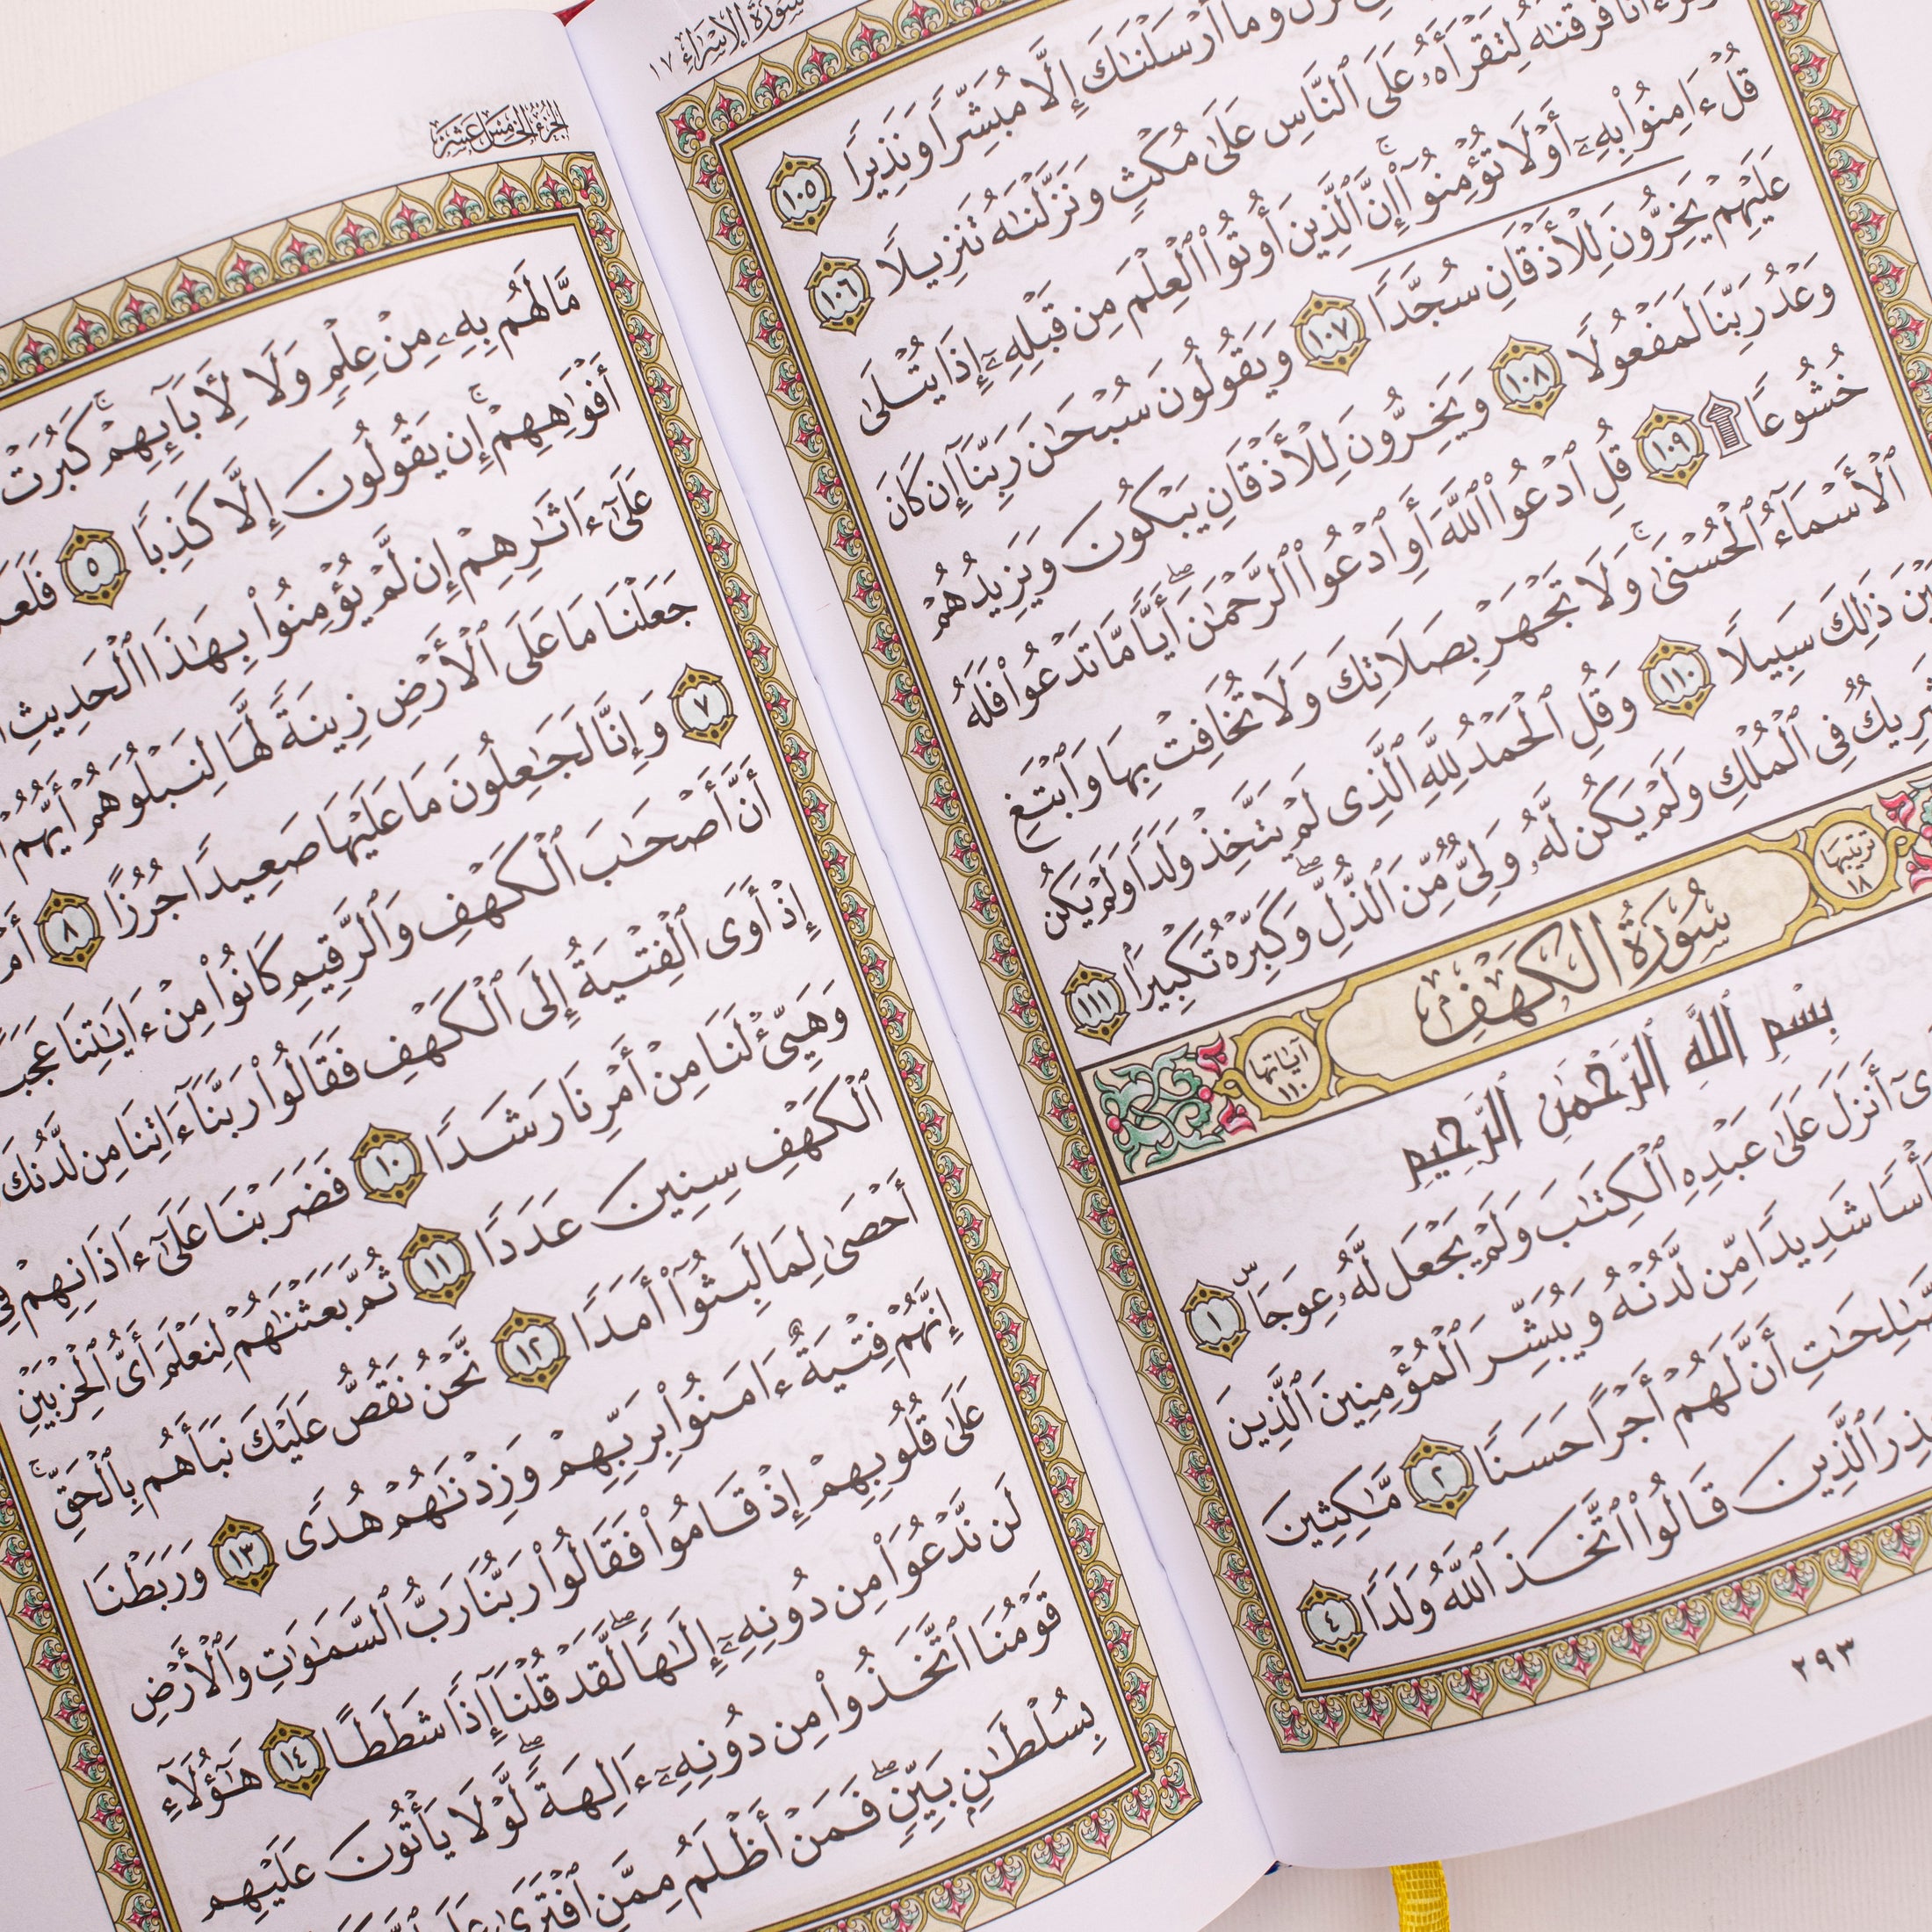 سُورَةُ الإِسْرَاءِ ١٧
وَمَآ أَرْسَلْنَٰكَ إِلَّا مُبَشِّرًا وَنَذِيرًا ١٠٥
فَرَقْنَٰهُ لِتَقْرَأَهُۥ عَلَى ٱلنَّاسِ عَلَىٰ مُكْثٍ وَنَزَّلْنَٰهُ تَنزِيلًا ١٠٦
قُلْ ءَامِنُوا۟ بِهِۦٓ أَوْ لَا تُؤْمِنُوٓا۟ ۚ إِنَّ ٱلَّذِينَ أُوتُوا۟ ٱلْعِلْمَ مِن قَبْلِهِۦٓ إِذَا يُتْلَىٰ
عَلَيْهِمْ يَخِرُّونَ لِلْأَذْقَانِ سُجَّدًا ١٠٧ وَيَقُولُونَ سُبْحَٰنَ رَبِّنَآ إِن كَانَ
وَعْدُ رَبِّنَا لَمَفْعُولًا ١٠٨ وَيَخِرُّونَ لِلْأَذْقَانِ يَبْكُونَ وَيَزِيدُهُمْ
خُشُوعًا ۩ ١٠٩ قُلِ ٱدْعُوا۟ ٱللَّهَ أَوِ ٱدْعُوا۟ ٱلرَّحْمَٰنَ ۖ أَيًّا مَّا تَدْعُوا۟ فَلَهُ
ٱلْأَسْمَآءُ ٱلْحُسْنَىٰ ۚ وَلَا تَجْهَرْ بِصَلَاتِكَ وَلَا تُخَافِتْ بِهَا وَٱبْتَغِ
بَيْنَ ذَٰلِكَ سَبِيلًا ١١٠ وَقُلِ ٱلْحَمْدُ لِلَّهِ ٱلَّذِى لَمْ يَتَّخِذْ وَلَدًا وَلَمْ يَكُن
شَرِيكٌ فِى ٱلْمُلْكِ وَلَمْ يَكُن لَّهُۥ وَلِىٌّ مِّنَ ٱلذُّلِّ ۖ وَكَبِّرْهُ تَكْبِيرًۢا ١١١
ترتيبها ١٨ سُورَةُ الكَهْفِ آياتها ١١٠
بِسْمِ ٱللَّهِ ٱلرَّحْمَٰنِ ٱلرَّحِيمِ
أَنزَلَ عَلَىٰ عَبْدِهِ ٱلْكِتَٰبَ وَلَمْ يَجْعَل لَّهُۥ عِوَجَا ۜ ١
بَأْسًا شَدِيدًا مِّن لَّدُنْهُ وَيُبَشِّرَ ٱلْمُؤْمِنِينَ ٱلَّذِينَ
ٱلصَّٰلِحَٰتِ أَنَّ لَهُمْ أَجْرًا حَسَنًا ٢ مَّٰكِثِينَ
وَيُنذِرَ ٱلَّذِينَ قَالُوا۟ ٱتَّخَذَ ٱللَّهُ وَلَدًا ٤
٢٩٣
الجُزْءُ الخَامِسَ عَشَرَ
مَّا لَهُم بِهِۦ مِنْ عِلْمٍ وَلَا لِـَٔابَآئِهِمْ ۚ كَبُرَتْ
أَفْوَٰهِهِمْ ۚ إِن يَقُولُونَ إِلَّا كَذِبًا ٥
عَلَىٰٓ ءَاثَٰرِهِمْ إِن لَّمْ يُؤْمِنُوا۟ بِهَٰذَا ٱلْحَدِيثِ
جَعَلْنَا مَا عَلَى ٱلْأَرْضِ زِينَةً لَّهَا لِنَبْلُوَهُمْ أَيُّهُمْ
٧ وَإِنَّا لَجَٰعِلُونَ مَا عَلَيْهَا صَعِيدًا جُرُزًا ٨
أَنَّ أَصْحَٰبَ ٱلْكَهْفِ وَٱلرَّقِيمِ كَانُوا۟ مِنْ ءَايَٰتِنَا عَجَبًا
إِذْ أَوَى ٱلْفِتْيَةُ إِلَى ٱلْكَهْفِ فَقَالُوا۟ رَبَّنَآ ءَاتِنَا مِن لَّدُنكَ
وَهَيِّئْ لَنَا مِنْ أَمْرِنَا رَشَدًا ١٠ فَضَرَبْنَا عَلَىٰٓ ءَاذَانِهِمْ فِى
ٱلْكَهْفِ سِنِينَ عَدَدًا ١١ ثُمَّ بَعَثْنَٰهُمْ لِنَعْلَمَ أَىُّ ٱلْحِزْبَيْنِ
أَحْصَىٰ لِمَا لَبِثُوٓا۟ أَمَدًا ١٢ نَّحْنُ نَقُصُّ عَلَيْكَ نَبَأَهُم بِٱلْحَقِّ ۚ
إِنَّهُمْ فِتْيَةٌ ءَامَنُوا۟ بِرَبِّهِمْ وَزِدْنَٰهُمْ هُدًى ١٣ وَرَبَطْنَا
عَلَىٰ قُلُوبِهِمْ إِذْ قَامُوا۟ فَقَالُوا۟ رَبُّنَا رَبُّ ٱلسَّمَٰوَٰتِ وَٱلْأَرْضِ
لَن نَّدْعُوَا۟ مِن دُونِهِۦٓ إِلَٰهًا ۖ لَّقَدْ قُلْنَآ إِذًا شَطَطًا ١٤ هَٰٓؤُلَآءِ
قَوْمُنَا ٱتَّخَذُوا۟ مِن دُونِهِۦٓ ءَالِهَةً ۖ لَّوْلَا يَأْتُونَ عَلَيْهِم
بِسُلْطَٰنٍۭ بَيِّنٍ ۖ فَمَنْ أَظْلَمُ مِمَّنِ ٱفْتَرَىٰ عَلَى